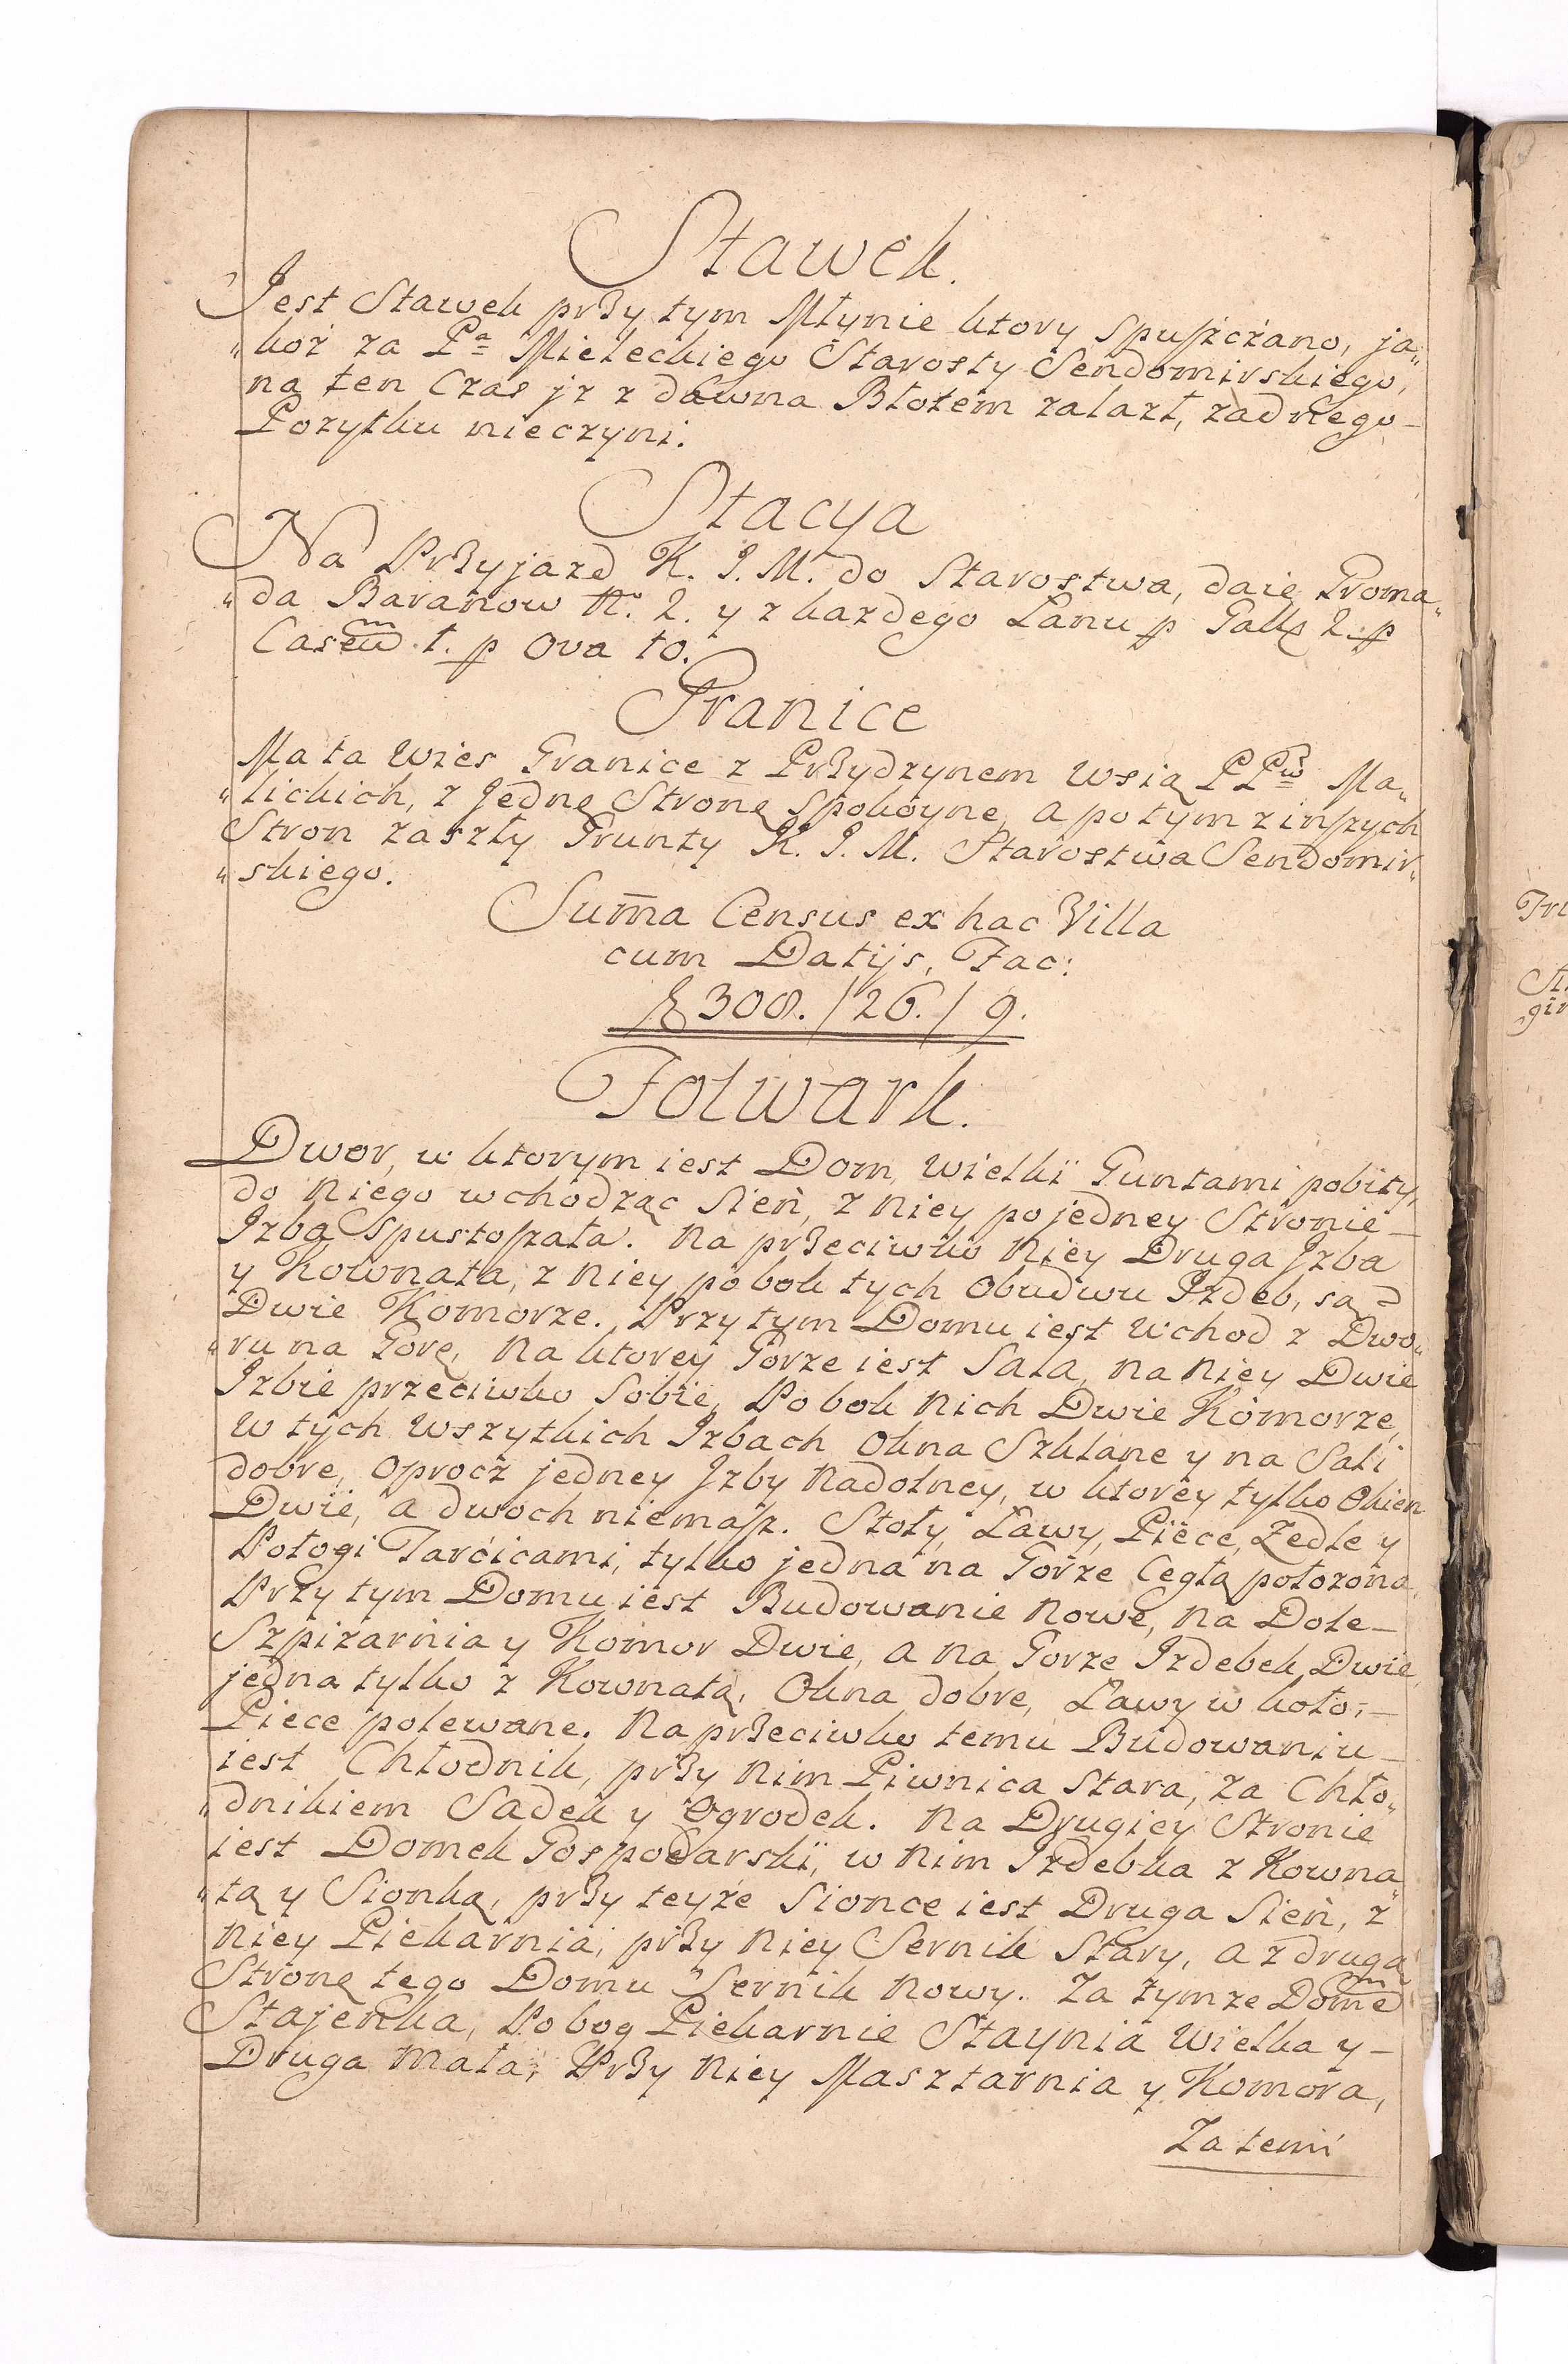 Stawek.
Jest Stawek przy tym Młynie ktory spuszczano, ja„
„koż za Pª Mieleckiego Starosty Sendomirskiego,
na ten Czas jż z dawna Błotem zalazł, zadnego
Pozytku nieczyni.
Stacya
Na Przyjazd K. J. M. do Starostwa, daię Groma„
„da Baranow N. 2. y z kazdego Łanu p Gall 2. p
Caseum 1. p Ova 10.
Granice
Ma ta Wies Granice z Przydzynem Wsią PPw Ma„
„lickich, z Jednę Stronę spokoyne, a potym z inszych
Stron zaszły Grunty K. J. M. Starostwa Sendomir„
„skiego.
Sum̃a Census ex hac Villa
cum Datijs, Fac:
fl 308. / 26. / 9.
Folwark.
Dwor, w ktorym iest Dom, Wielki Guntami pobity,
do niego wchodząc Sień, z niey po jedney Stronie
Izba Spustoszała. Na przeciwko niey Druga Jzba
y Kownata, z niey pobok tych obudwu Izdeb, są
Dwie Komorze. Przy tym Domu iest Wchod z Dwo„
„ru na Gorę, Na ktorey Gorze iest Sala, na niey Dwie
Izbie przeciwko Sobie, Pobok nich Dwie Komorze,
W tych wszytkich Izbach Okna Szklane y na Sali
dobre, oprocz jedney Jzby Nadolney, w ktorey tylko Okien
Dwie, a dwoch niemasz. Stoły, Ławy, Piece, Zedle y
Połogi Tarcicami, tylko jedna na Gorze Cegłą położona.
Przy tym Domu iest Budowanie nowe, na Dole
Szpizarnia y Komor Dwie, a na Gorze Izdebek Dwie,
jedna tylko z Kownatą, Okna dobre, Ławy w koło,
Piece polewane. Na przeciwko temu Budowaniu
iest Chłodnik, przy nim Piwnica Stara, za Chło„
„dnikiem Sadek y Ogrodek. Na Drugiey Stronie
iest Domek Gospodarski, w nim Izdebka z Kowna„
„tą y Sionką, przy teyże Sionce iest Druga Sień, z
Niey Piekarnia, przy niey Sernik Stary, a z drugą
Stronę tego Domu Sernik Nowy. Za tymze Domem
Stajenka, Pobog Piekarnie Staynia Wielka y
Druga mała, Przy niey Masztarnia y Komora,
Za temi